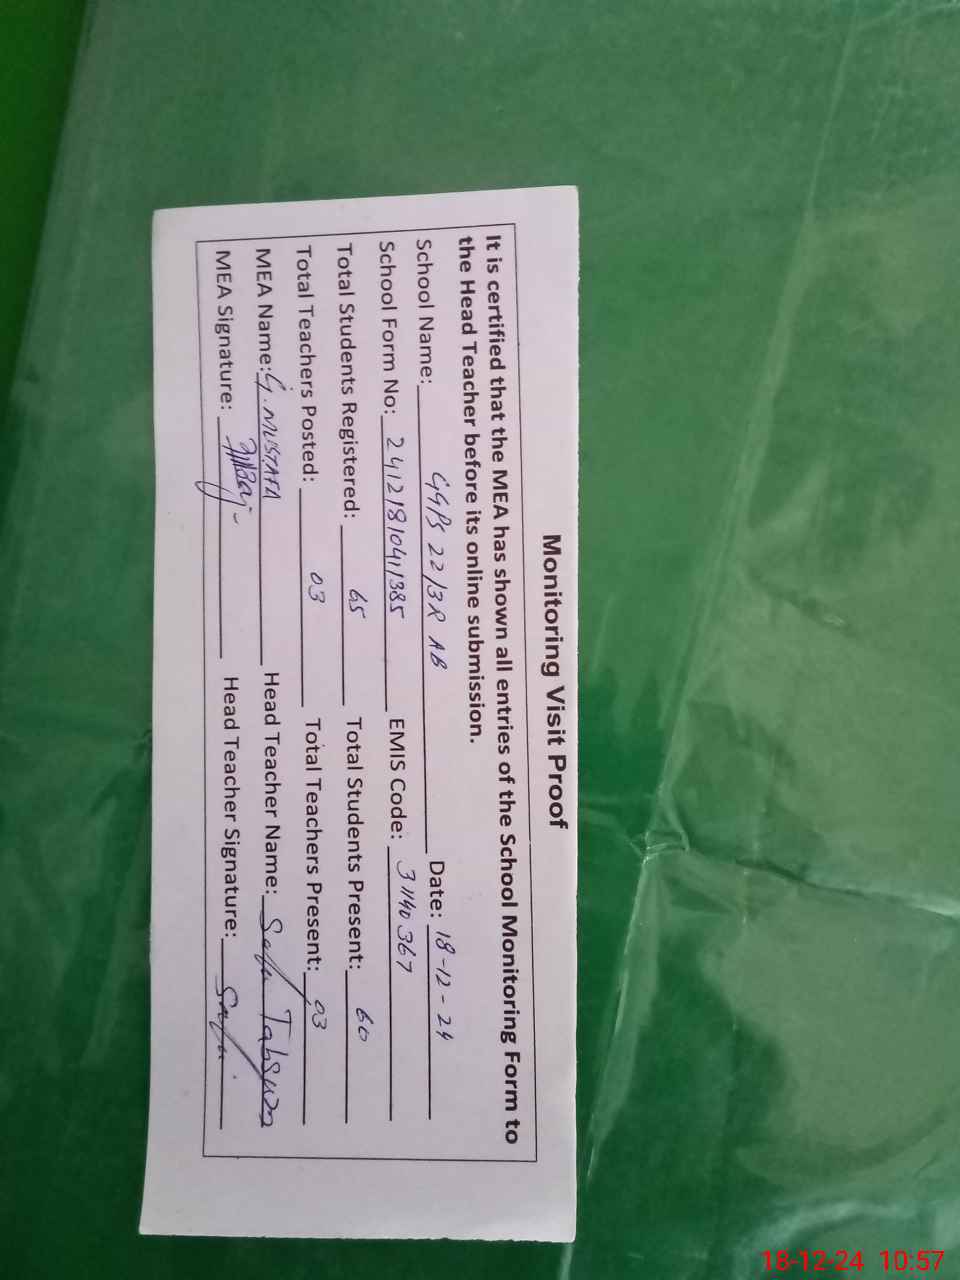 Monitoring Visit Proof
It is certified that the MEA has shown all entries of the School Monitoring Form to
the Head Teacher before its online submission.
School Name: GGPS 22/3R AB Date: 18-12-24
School Form No: 24121810411385 EMIS Code: 31140367
Total Students Registered: 65 Total Students Present: 60
Total Teachers Posted: 03 Total Teachers Present: 03
MEA Name: G. MUSTAFA Head Teacher Name:
MEA Signature: Head Teacher Signature:
18-12-24 10:57